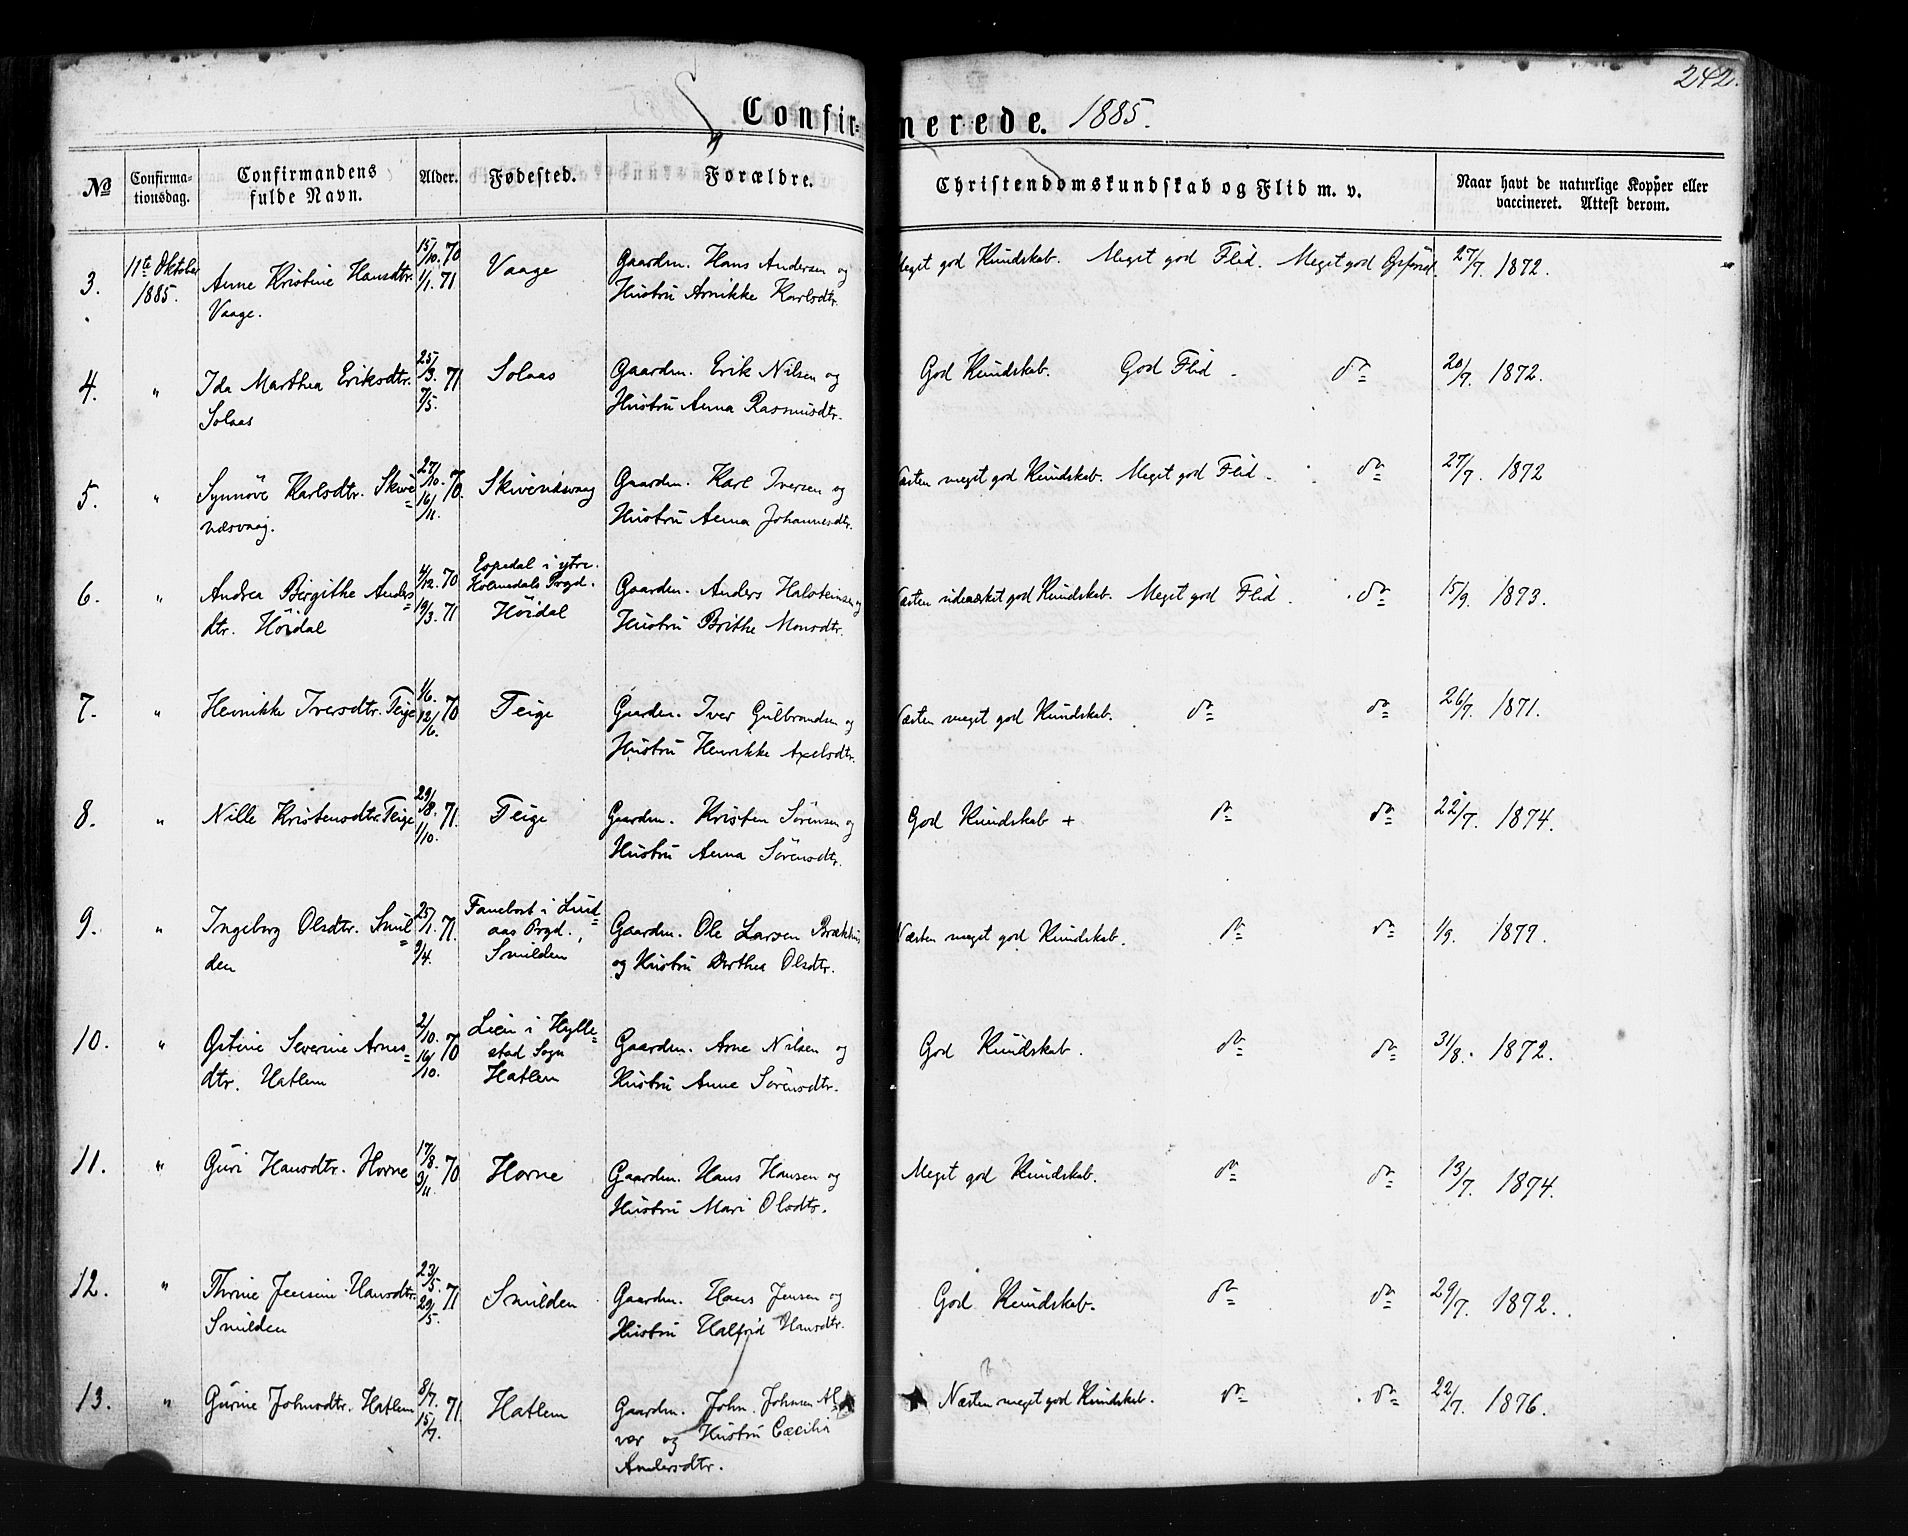 242.
Confirmerede. 1885.
No
Confirmationsdag.
Confirmandens fulde Navn.
Alder.
Fødested.
Forældre.
Christendomskundskab og Flid m. v.
Naar havt de naturlige Kopper eller vaccineret. Attest derom.
3. 11te Oktober 1885. Anne Kristine Hansdtr. Vaage. 15/10. 70 1/1. 71 Vaage Gaardm. Hans Andersen og Hustru Arnikke Karlsdtr. Meget god Kundskab. Meget god Flid. Meget god Opførsel 27/7. 1872.
4. " Ida Marthea Eriksdtr. Solaas 25/3. 7/5. 71 Solaas Gaardm. Erik Nilsen og Hustru Anna Rasmusdtr. God Kundskab. God Flid do 20/7. 1872.
5. " Synnöve Karlsdtr. Skivenæsvaag. 27/10. 70 16/11. 70. Skivenæsvaag Gaardm. Karl Iversen og Hustru Anna Johannesdtr. Næsten meget god Kundskab. Meget god Flid do 27/7. 1872
6. " Andrea Birgithe Andersdtr. Höidal 4/12. 70 19/3. 71 Espedal i ytre Holmedals Prgd. Höidal Gaardm. Anders Halsteinsen og Hustru Brithe Monsdtr. Næsten udmærket god Kundskab. Meget god Flid do 15/9. 1873.
7. " Henrikke Iversdtr. Teige 1/6. 12/6 70 Teige Gaardm. Iver Gulbrandsen og Hustru Henrikke Axelsdtr. Næsten meget god Kundskab. do do 26/7. 1871.
8. " Nille Kristensdtr. Teige 29/8. 1/10. 71. Teige Gaardm. Kristen Sörensen og Hustru Anna Sörensdtr. God Kundskab + do do 22/7. 1874.
9. " Ingeborg Olsdtr. Smilden 25/1. 9/4. 71. Fanebost i Lindaas Prgd., Smilden Gaardm. Ole Larsen Brækhus og Hustru Berthea Olsdtr. Næsten meget god Kundskab. do do 1/9. 1877.
10. " Ostine Severine Arnesdtr. Hatlem 2/10. 16/10. 70 Lien i Hyllestad Sogn Hatlem Gaardm. Arne Nilsen og Hustru Anne Sörensdtr. God Kundskab. do do 31/8. 1872.
11. " Guri Hansdtr. Horne 17/8. 9/11 70 Horne Gaardm. Hans Hansen og Hustru Mari Olsdtr. Meget god Kundskab. do do 13/7. 1874.
12. " Thrine Jensine Hansdtr. Smilden 23/5. 29/5. 71 Smilden Gaardm. Hans Jensen og Hustru Halfrid Hansdtr. God Kundskab. do do 29/7. 1872.
13. " Gurine Johnsdtr. Hatlem 8/7. 15/7. 71. Hatlem Gaardm. John Johnsen Alvær og Hustru Cæcilia Andersdtr. Næsten meget god Kundskab. do do 22/7. 1876.